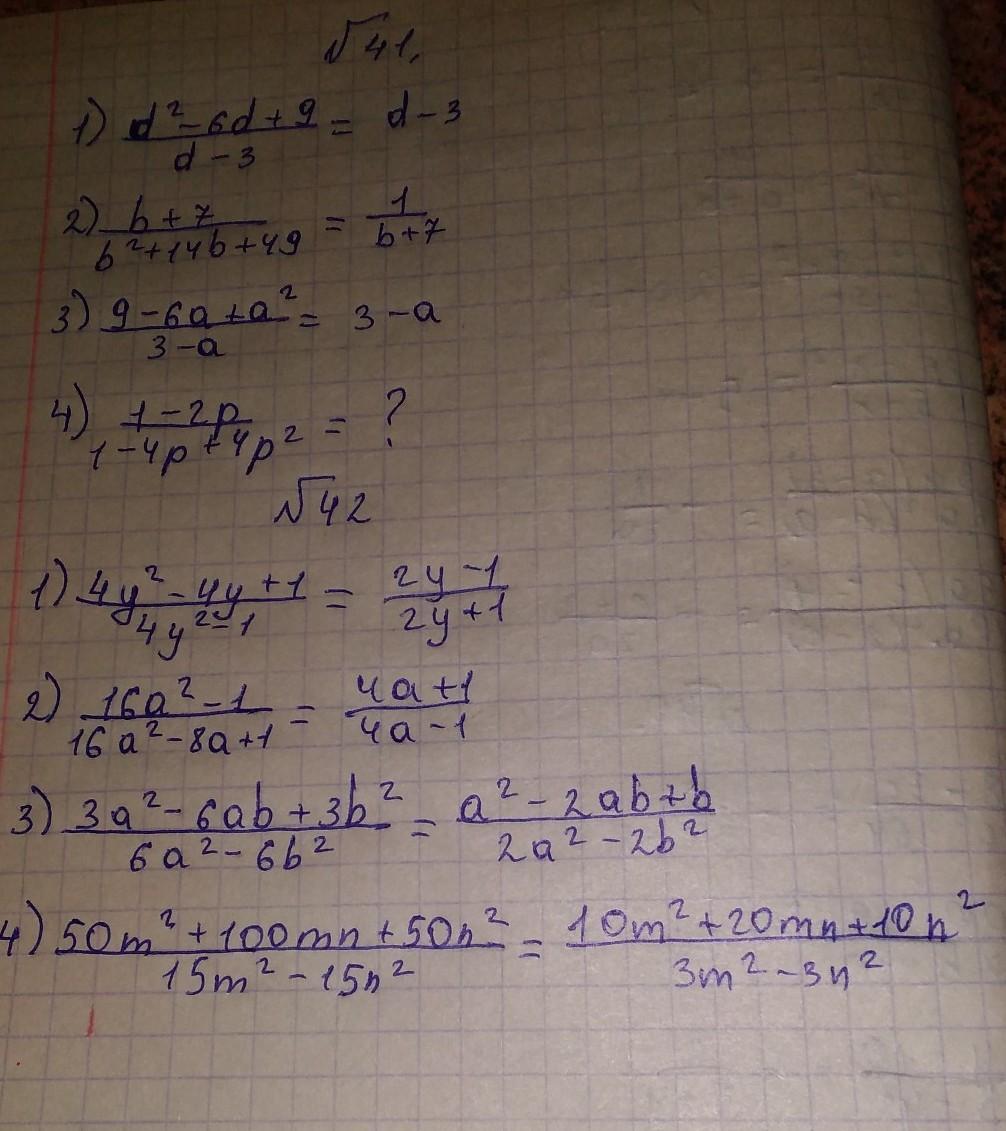 √41.
1) (d² - 6d + 9)/(d - 3) = d - 3
2) (b + 7)/(b² + 14b + 49) = 1/(b + 7)
3) (9 - 6a + a²)/(3 - a) = 3 - a
4) (1 - 2p)/(1 - 4p + 4p²) = ?
√42
1) (4y² - 4y + 1)/(4y² - 1) = (2y - 1)/(2y + 1)
2) (16a² - 1)/(16a² - 8a + 1) = (4a + 1)/(4a - 1)
3) (3a² - 6ab + 3b²)/(6a² - 6b²) = (a² - 2ab + b)/(2a² - 2b²)
4) (50m² + 100mn + 50n²)/(15m² - 15n²) = (10m² + 20mn + 10n²)/(3m² - 3n²)